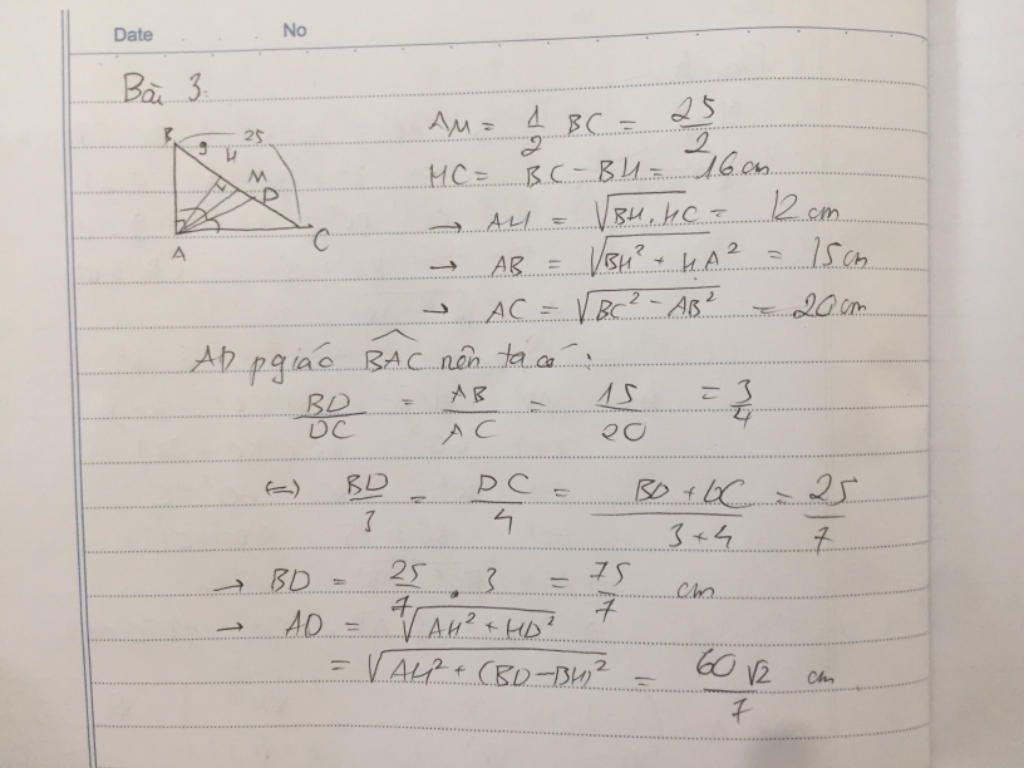 Date No
Bài 3:
B 25
9
H
M
D
A
C
AM = 1/2 BC = 25/2
HC = BC - BH = 16 cm
→ AH = √(BH . HC) = 12 cm
→ AB = √(BH² + HA²) = 15 cm
→ AC = √(BC² - AB²) = 20 cm
AD pgiác \widehat{BAC} nên ta có:
BD/DC = AB/AC = 15/20 = 3/4
(=) BD/3 = DC/4 = (BD + DC)/(3+4) = 25/7
→ BD = 25/7 . 3 = 75/7 cm
→ AD = √(AH² + HD²)
= √(AH² + (BD - BH)²) = 60√2/7 cm